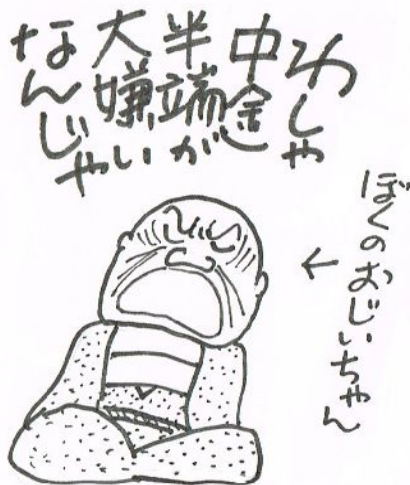 わしゃ
中途
半端が
大嫌い
なんじゃ
ぼくのおじいちゃん